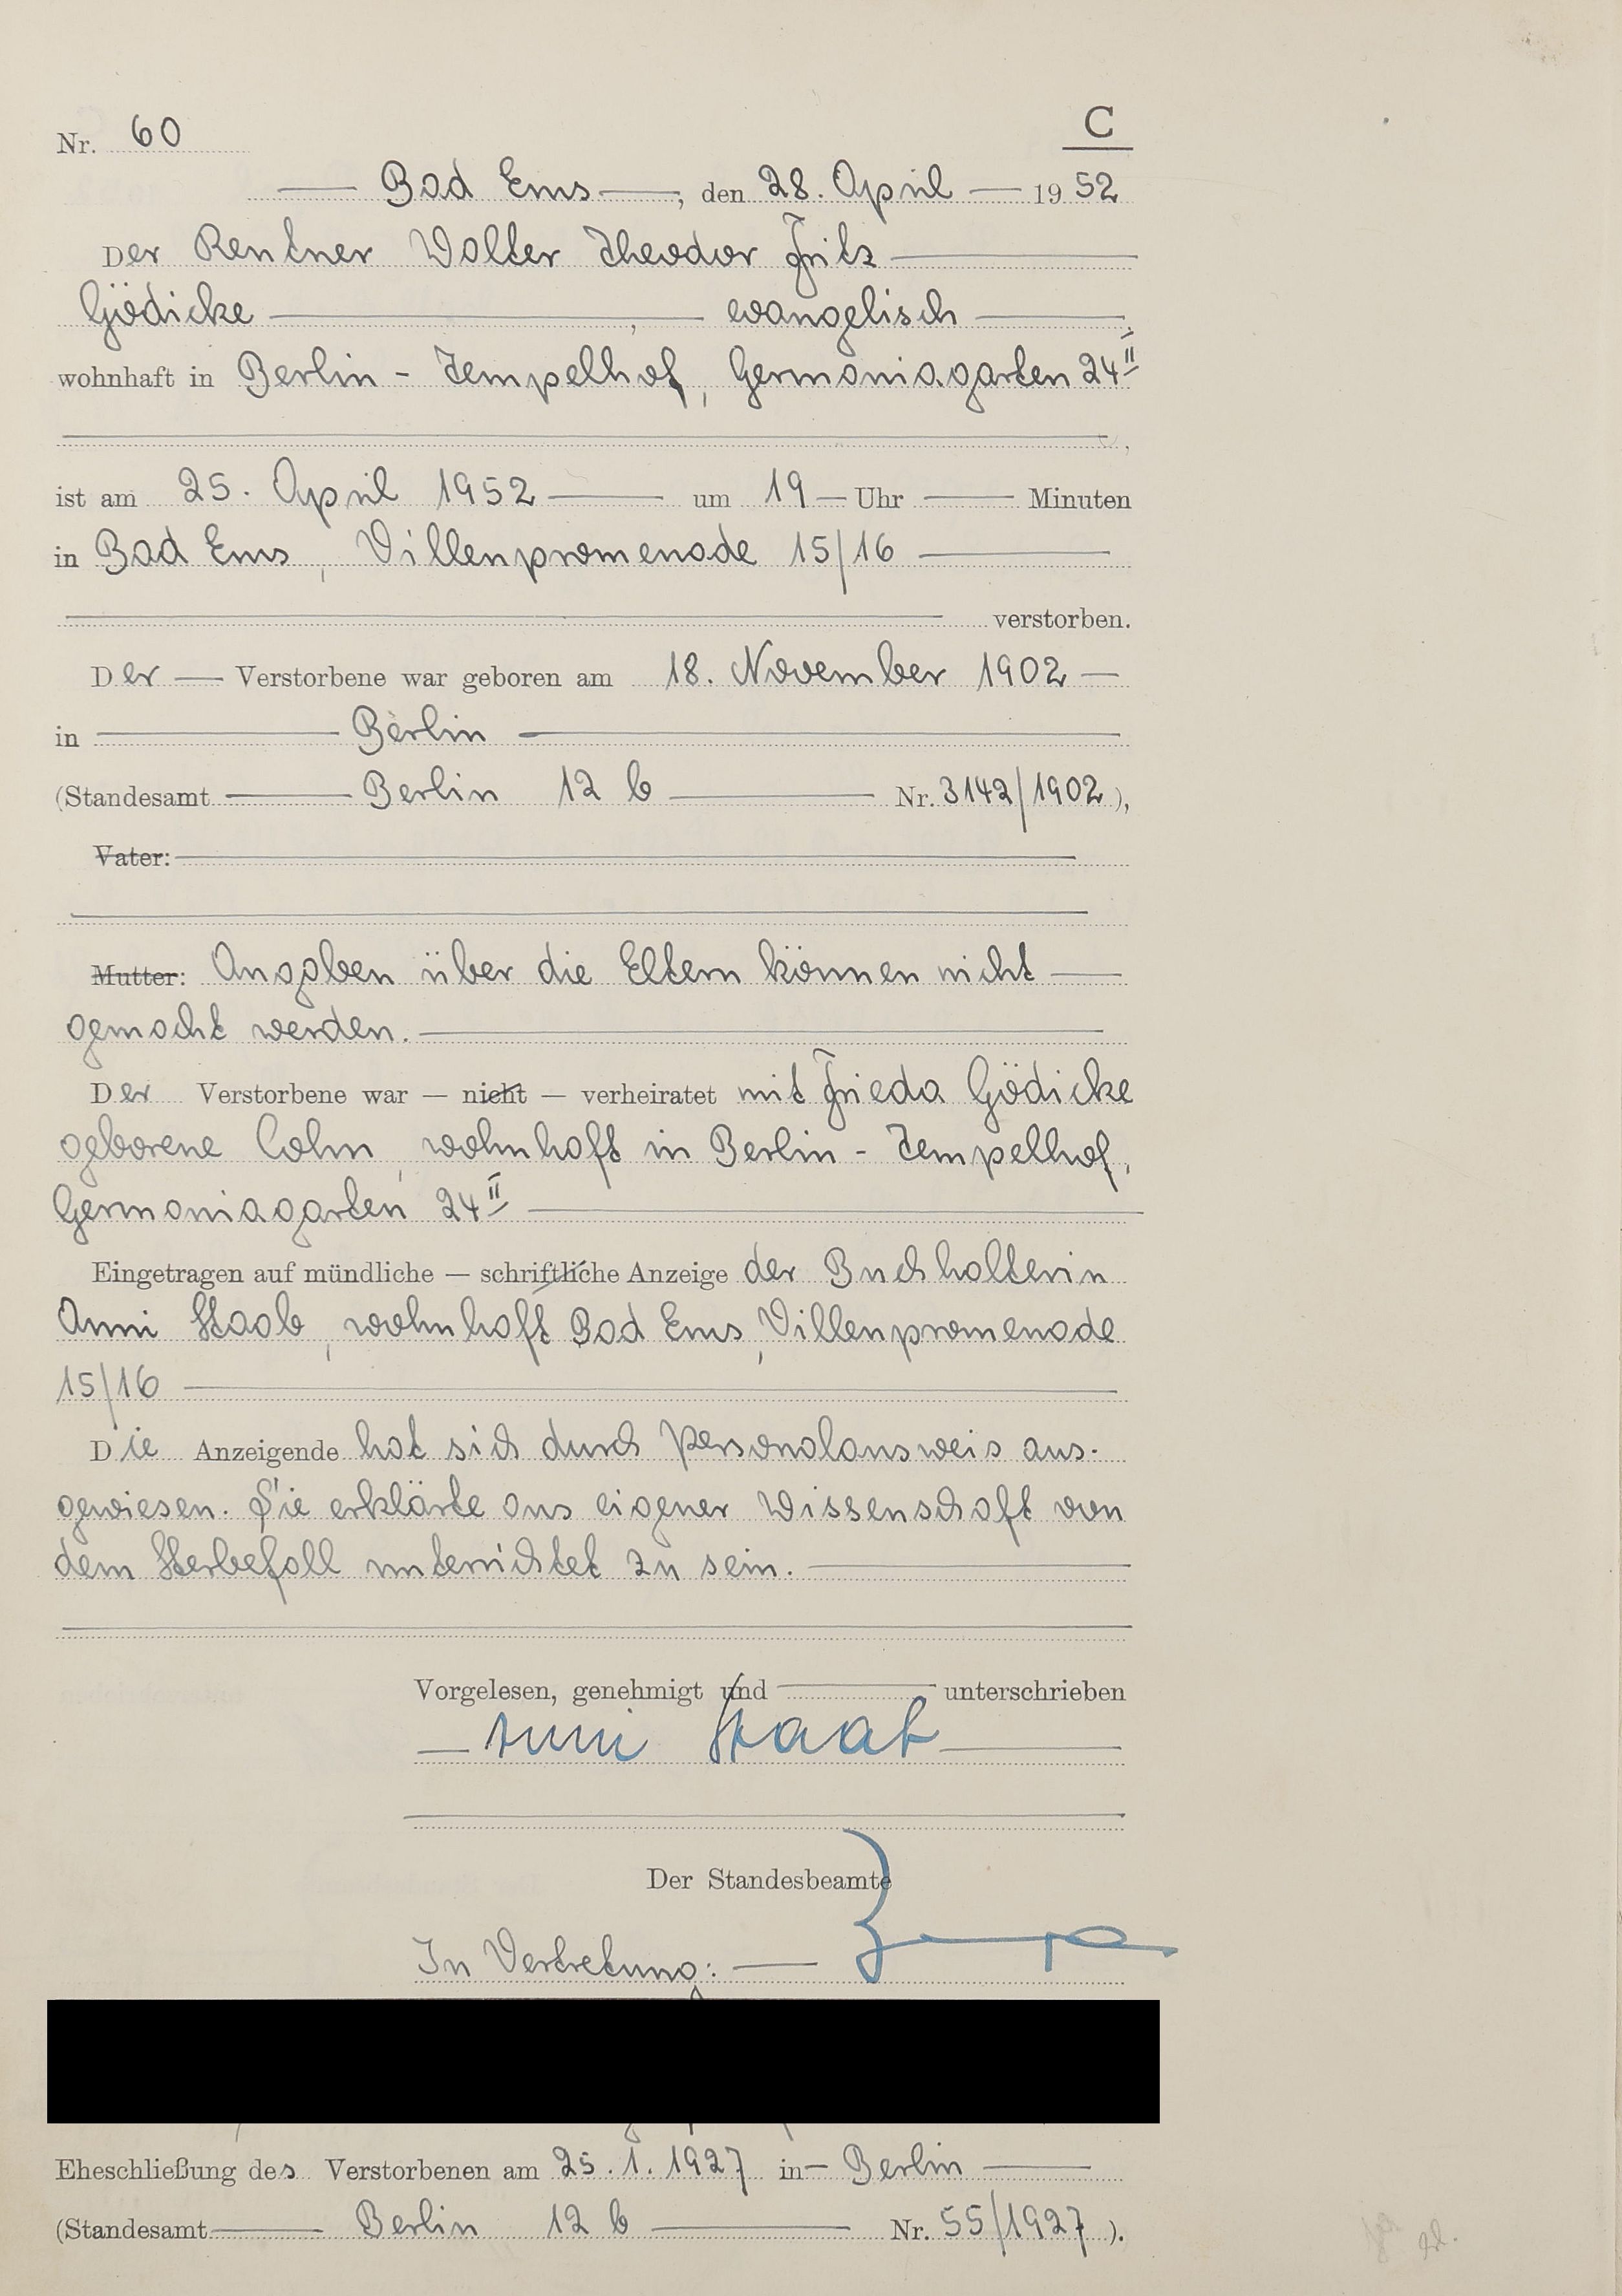 Nr. 60
C
Bad Ems, den 28. April 1952
Der Rentner Walter Theodor Fritz
Gödicke, evangelisch,
wohnhaft in Berlin - Tempelhof, Germaniagarten 24 II
,
ist am 25. April 1952 um 19 Uhr Minuten
in Bad Ems, Villenpromenade 15/16
verstorben.
Der Verstorbene war geboren am 18. November 1902
in Berlin
(Standesamt Berlin 12 b Nr. 3142/1902),
Vater:
Mutter: Angaben über die Eltern können nicht
gemacht werden.
Der Verstorbene war — nicht — verheiratet mit Frieda Gödicke
geborene Cohn, wohnhaft in Berlin - Tempelhof,
Germaniagarten 24 II
Eingetragen auf mündliche — schriftliche Anzeige der Buchhalterin
Anni Staab, wohnhaft Bad Ems, Villenpromenade
15/16
Die Anzeigende hat sich durch Personalausweis aus-
gewiesen. Sie erklärte aus eigener Wissenschaft von
dem Sterbefall unterrichtet zu sein.
Vorgelesen, genehmigt und unterschrieben
Anni Staab
Der Standesbeamte
In Vertretung:
Eheschließung des Verstorbenen am 25.1.1927 in Berlin
(Standesamt Berlin 12 b Nr. 55/1927).